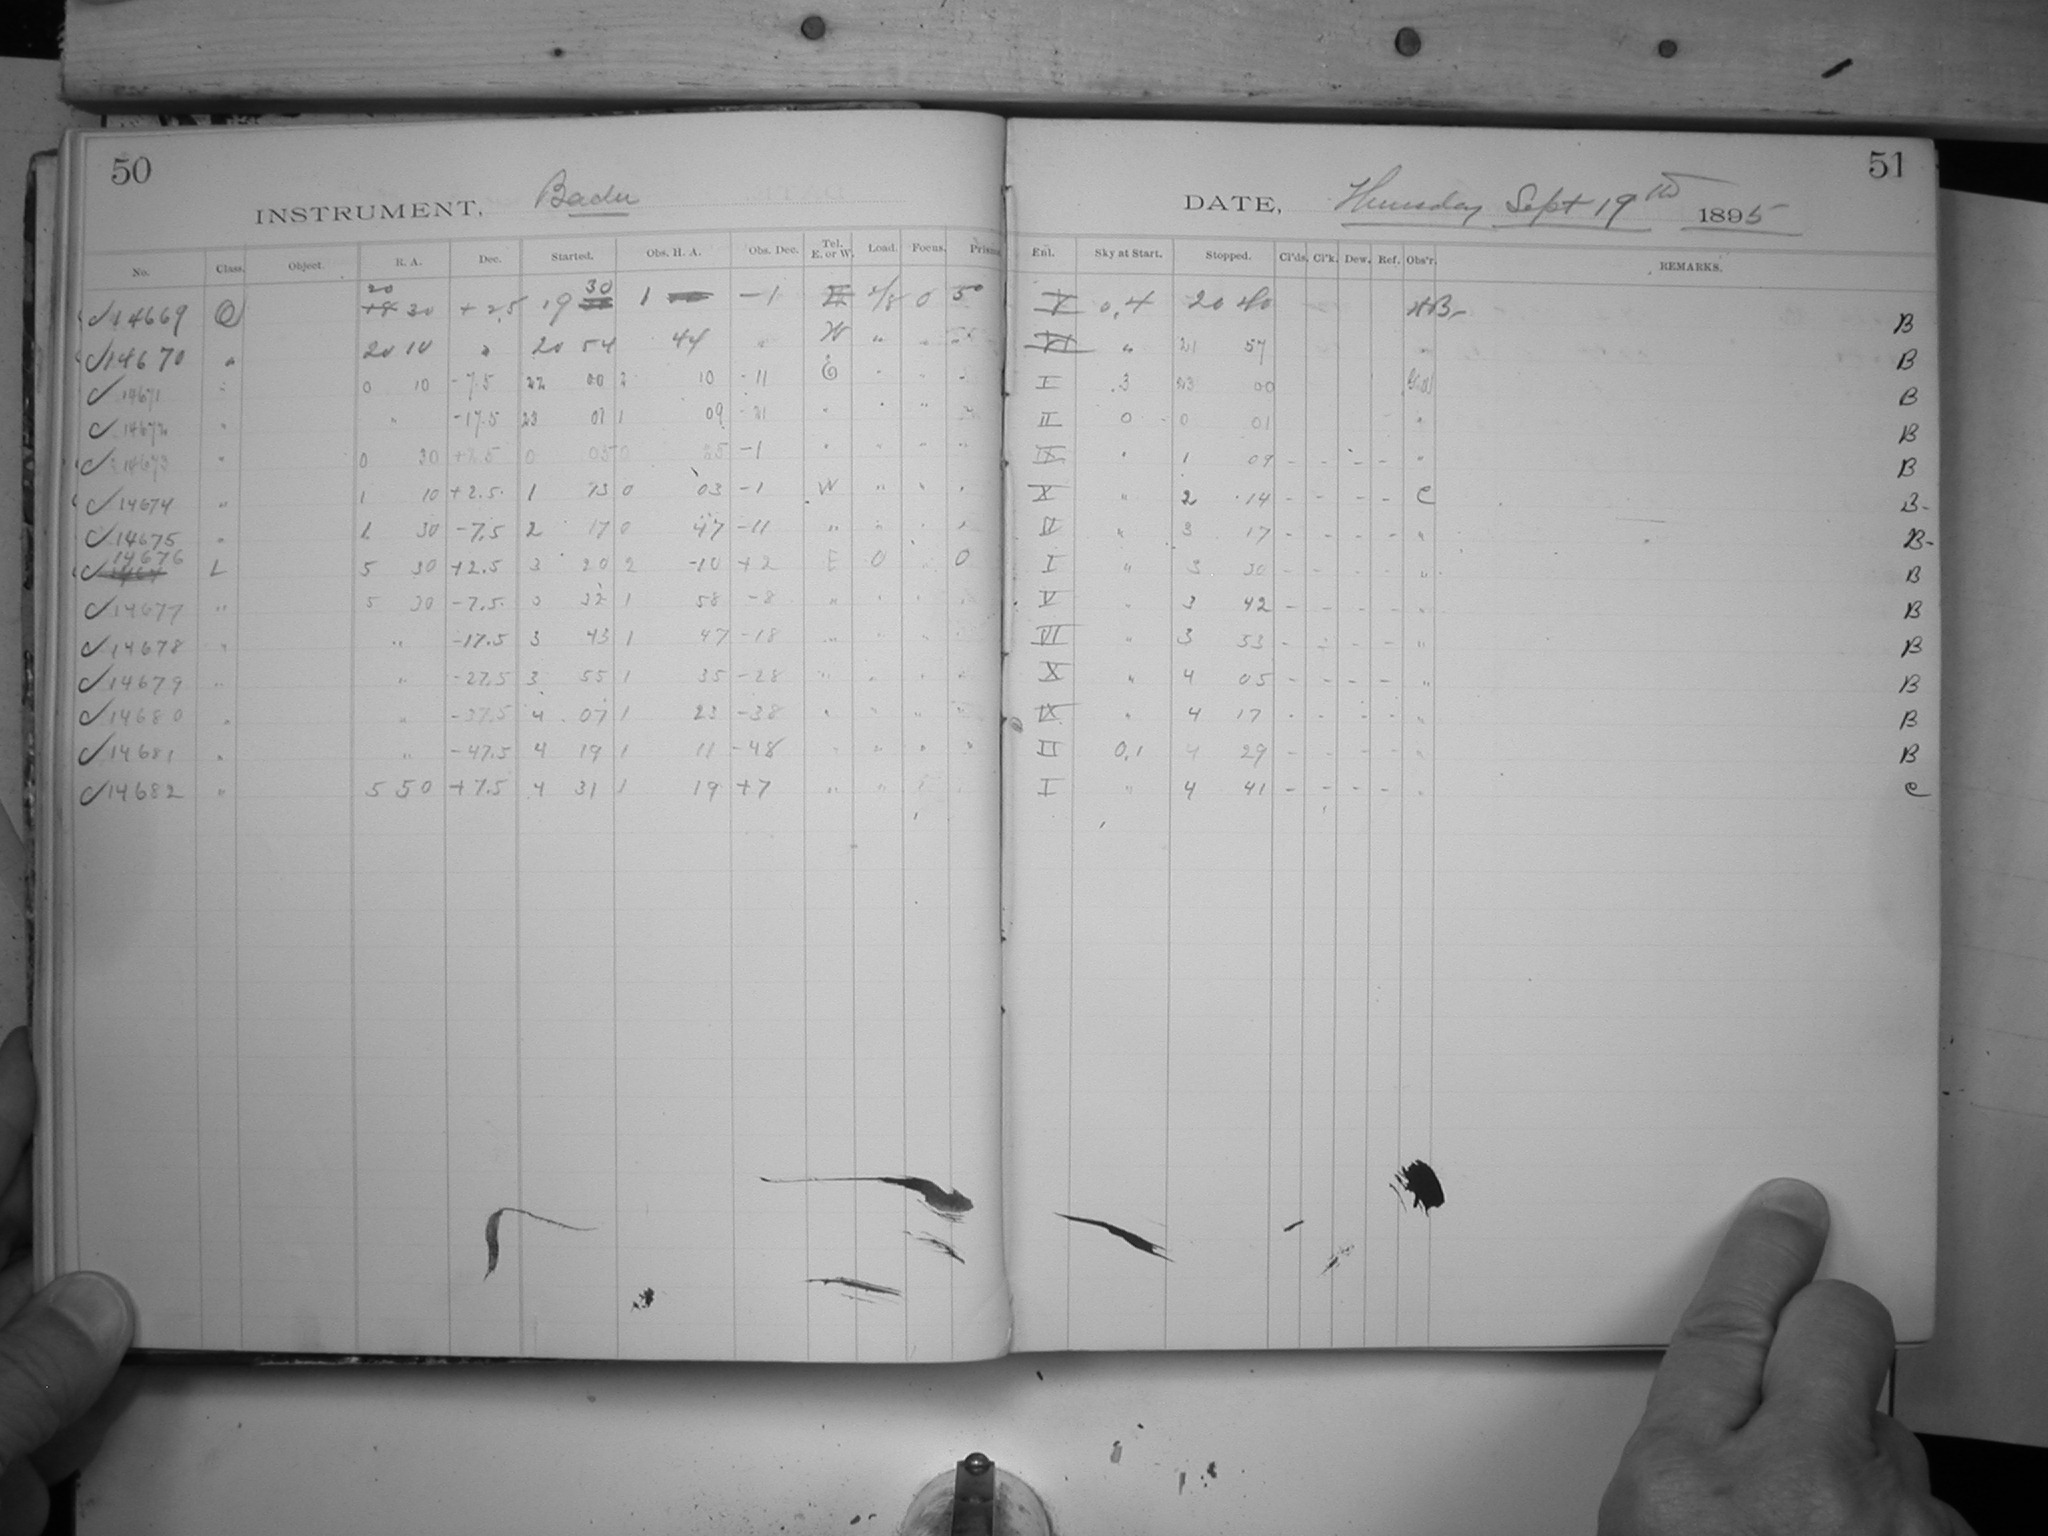 50
INSTRUMENT, Bache
No. Class. Object. R. A. Dec. Started. Obs. H. A. Obs. Dec. Tel. E. or W. Load. Focus. Prism
14669 20 30 +2.5 19 30 1 -1 0 5
14670 " 20 10 " 20 54 44 " W " " "
14671 " 0 10 -7.5 22 00 2 10 -11 E " " "
14672 " " -17.5 23 01 1 09 -21 " " " "
14673 " 0 30 +2.5 0 05 0 25 -1 " " " "
14674 " 1 10 +2.5 1 13 0 03 -1 W " " "
14675 " 1 30 -7.5 2 17 0 47 -11 " " " "
14676 L 5 30 +2.5 3 20 2 -10 +2 E 0 " 0
14677 " 5 30 -7.5 3 32 1 58 -8 " " " "
14678 " " -17.5 3 43 1 47 -18 " " " "
14679 " " -27.5 3 55 1 35 -28 " " " "
14680 " " -37.5 4 07 1 23 -38 " " " "
14681 " " -47.5 4 19 1 11 -48 " " " "
14682 " 5 50 +7.5 4 31 1 19 +7 " " " "
51
DATE, Thursday Sept 19th 1895
Enl. Sky at Start. Stopped. Cl'ds. Cl'k. Dew. Ref. Obs'r. REMARKS.
V 0,4 20 40 B
VI " 21 57 " B
I .3 23 00 B
II 0 0 01 " B
IX " 1 09 - - - - " B
X " 2 14 - - - - C B-
VI " 3 17 - - - - " B-
I " 3 30 - - - - " B
V " 3 42 - - - - " B
VI " 3 53 - - - - " B
X " 4 05 - - - - " B
IX " 4 17 - - - - " B
II 0,1 4 29 - - - - " B
I " 4 41 - - - - " C